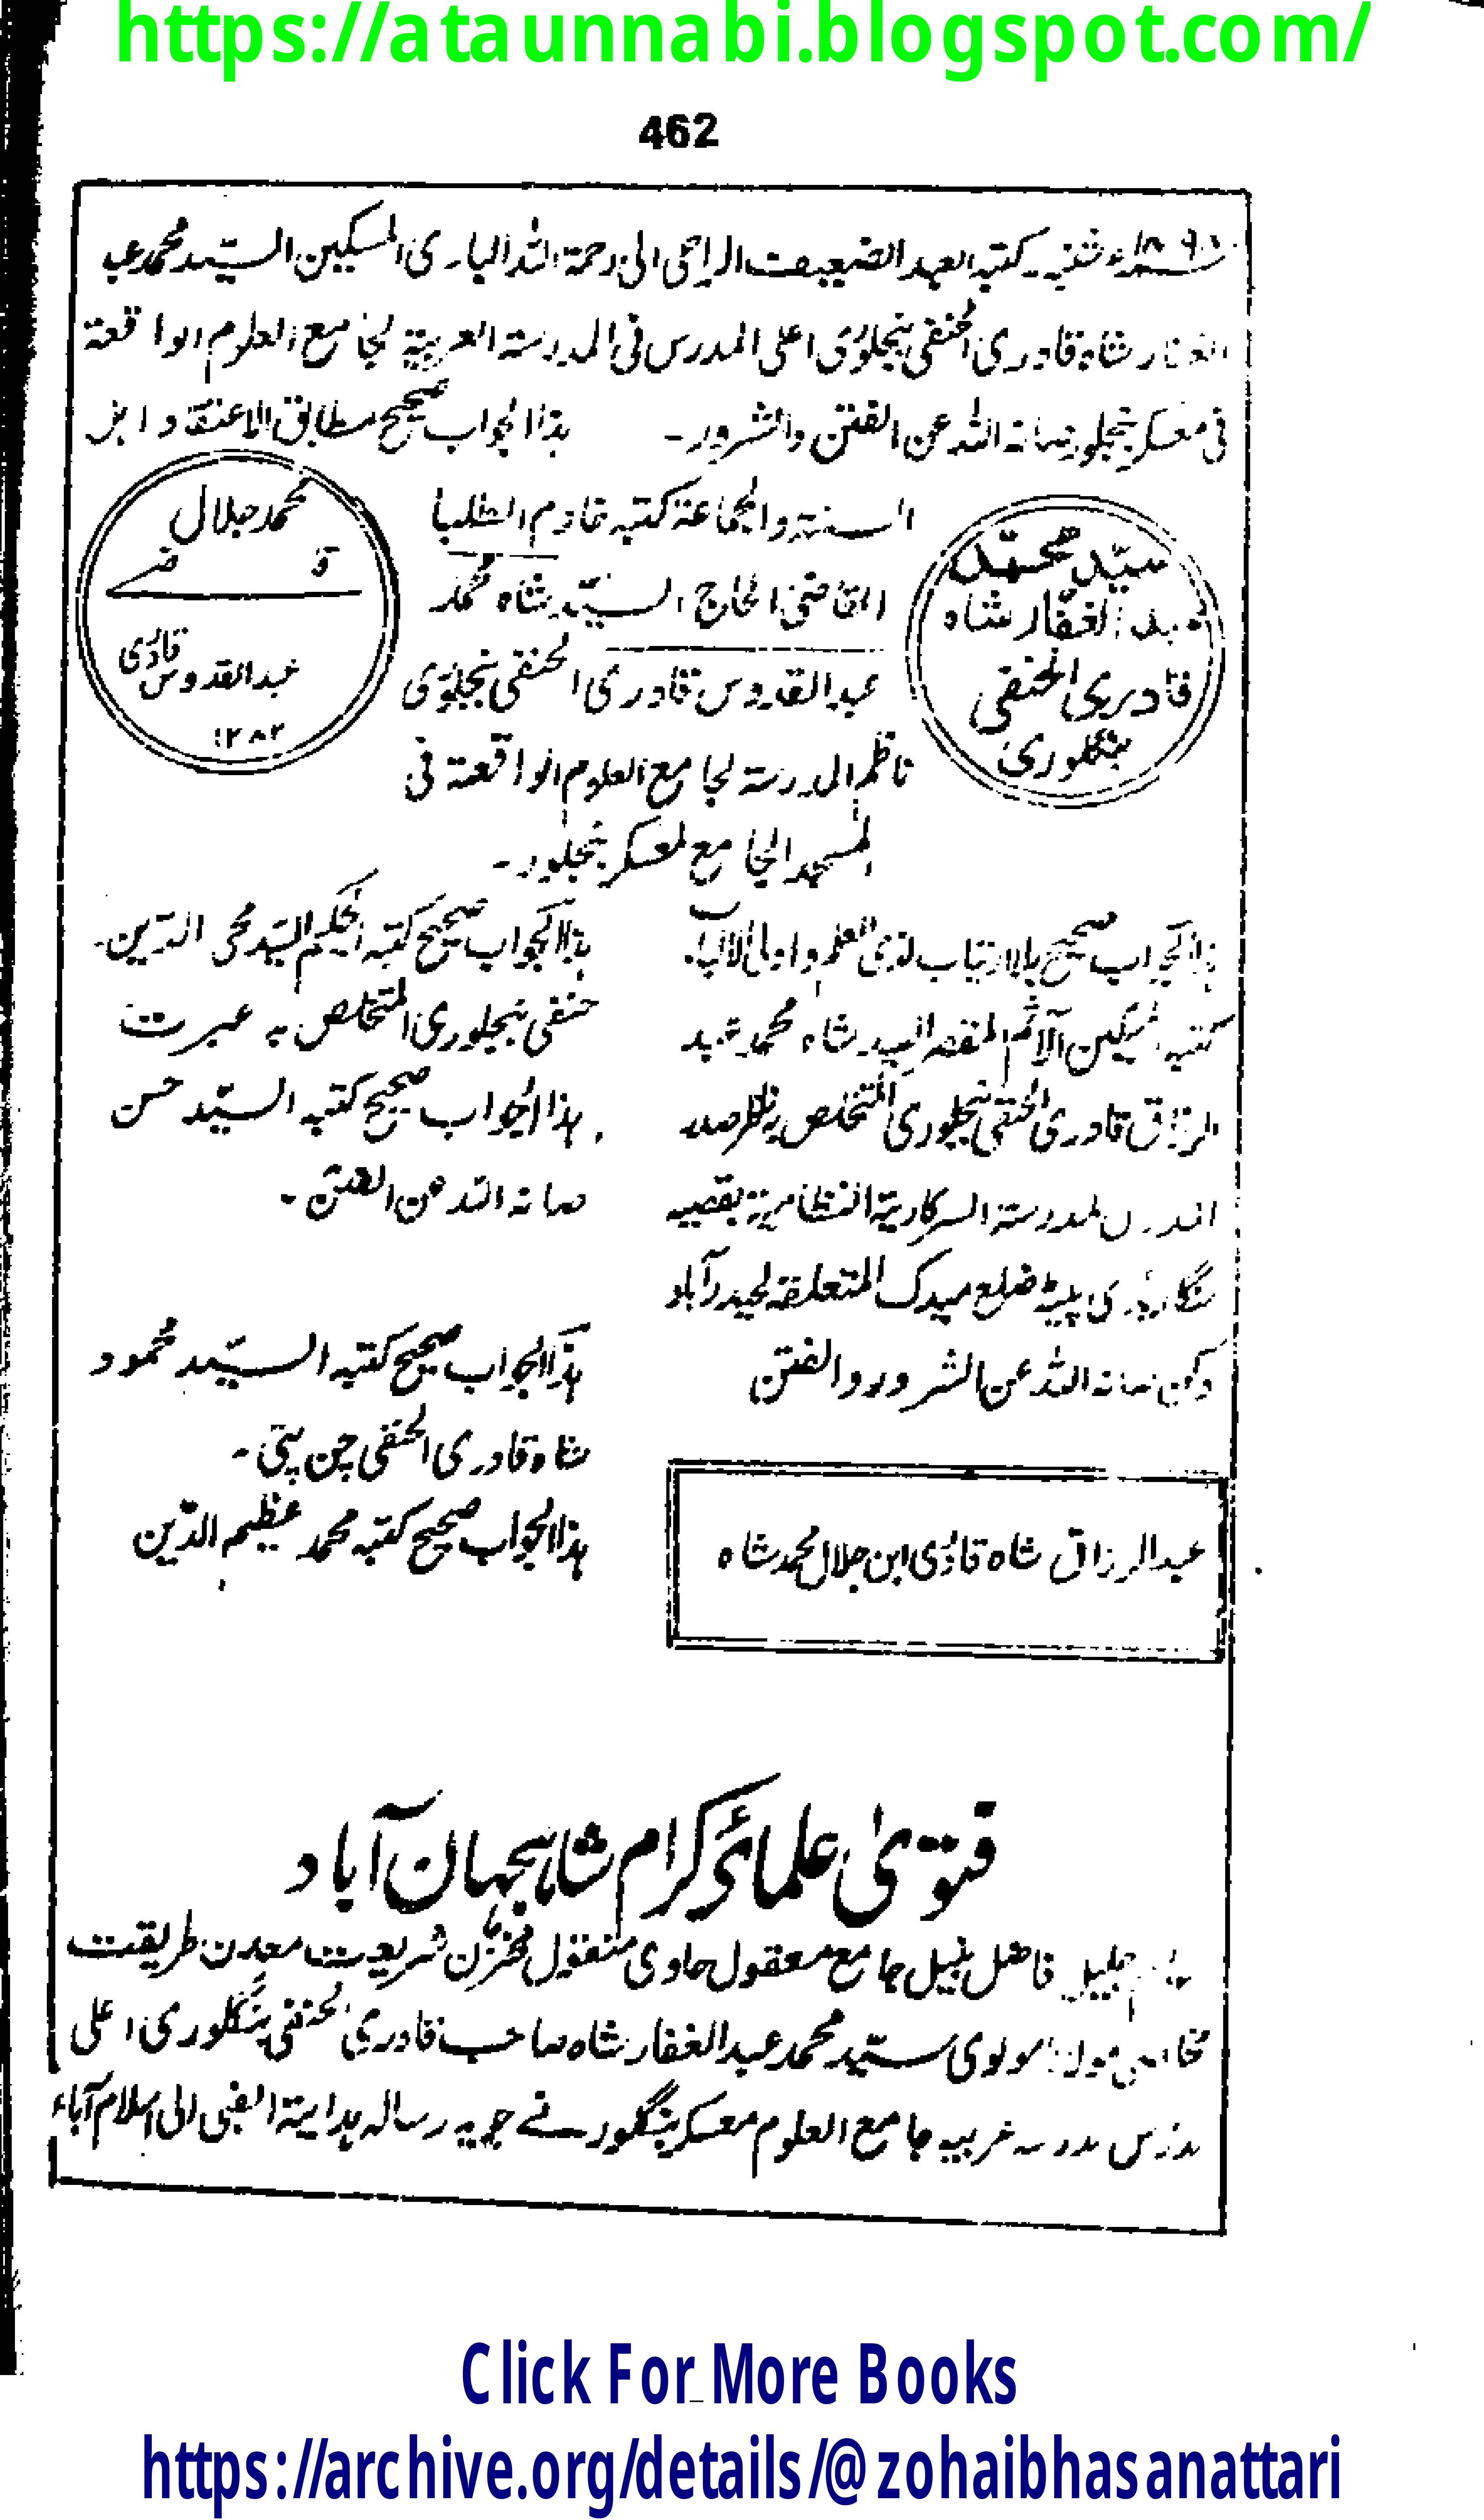 https://ataunnabi.blogspot.com/
462
۱۸۹۱ء شنبہ۔ کتبہ العبد الضعیف الراجی الی رحمۃ اللہ الباری المسکین السیّد محمد عبد
الغفار شاہ قادری الحنفی بنجلوری اعلی المدرس فی المدرستہ العربیۃ لجامع العلوم الواقعۃ
فی معسکر بنجلور صانہ اللہ عن الفتن والشرور۔
ہذا الجواب صحیح مطابق الاعتقاد اہل
السنۃ والجماعۃ کتبہ خادم الطلبا
القاضی الحاج السیّد شاہ محمد
عبد القدوس قادری الحنفی بنجلوری
ناظم المدرستہ لجامع العلوم الواقعۃ فی
المسجد الجامع لمعسکر بنجلور۔
سیّد محمّد
عبد الغفّار شاہ
قادری الحنفی
بنگلوری
محمد جلال
قاضی
عبد القدوس قادری
۱۲۸۲
ہذا الجواب صحیح بلا ارتیاب لذی العلم و اولی الالباب
کتبہ المسکین الآثم المفتقر السید شاہ محمد عبد
الرزاق قادری الحنفی بنجلوری المتخلص بہ
المدرس لمدرستہ السرکاریۃ النظامیۃ بقصبہ
ضلع میدک المتعلقہ لحیدرآباد
دکن صانہ اللہ عن الشرور والفتن
عبد الرزاق شاہ قادری ابن جلال محمد شاہ
ہذا الجواب صحیح کتبہ الحکیم السیّد محی الدّین۔
حنفی بنجلوری المتخلص بہ عبرت
ہذا الجواب صحیح کتبہ السیّد حسن
صانہ اللہ عن الفتن۔
ہذا الجواب صحیح کتبہ السیّد محمود
شاہ قادری الحنفی چن پٹی۔
ہذا الجواب صحیح کتبہ محمد عظیم الدّین
فتویٰ علمائے کرام شاہجہان آباد
جلیل فاضل نبیل جامع معقول حاوی منقول مخزن شریعت معدن طریقت
مولوی سیّد محمد عبد الغفار شاہ صاحب قادری الحنفی بنگلوری اعلی
مدرس مدرسہ عربیہ جامع العلوم معسکر بنگلور نے جو یہ رسالہ ہدایتہ الغبی الی اسلام آباء
Click For More Books
https://archive.org/details/@zohaibhasanattari